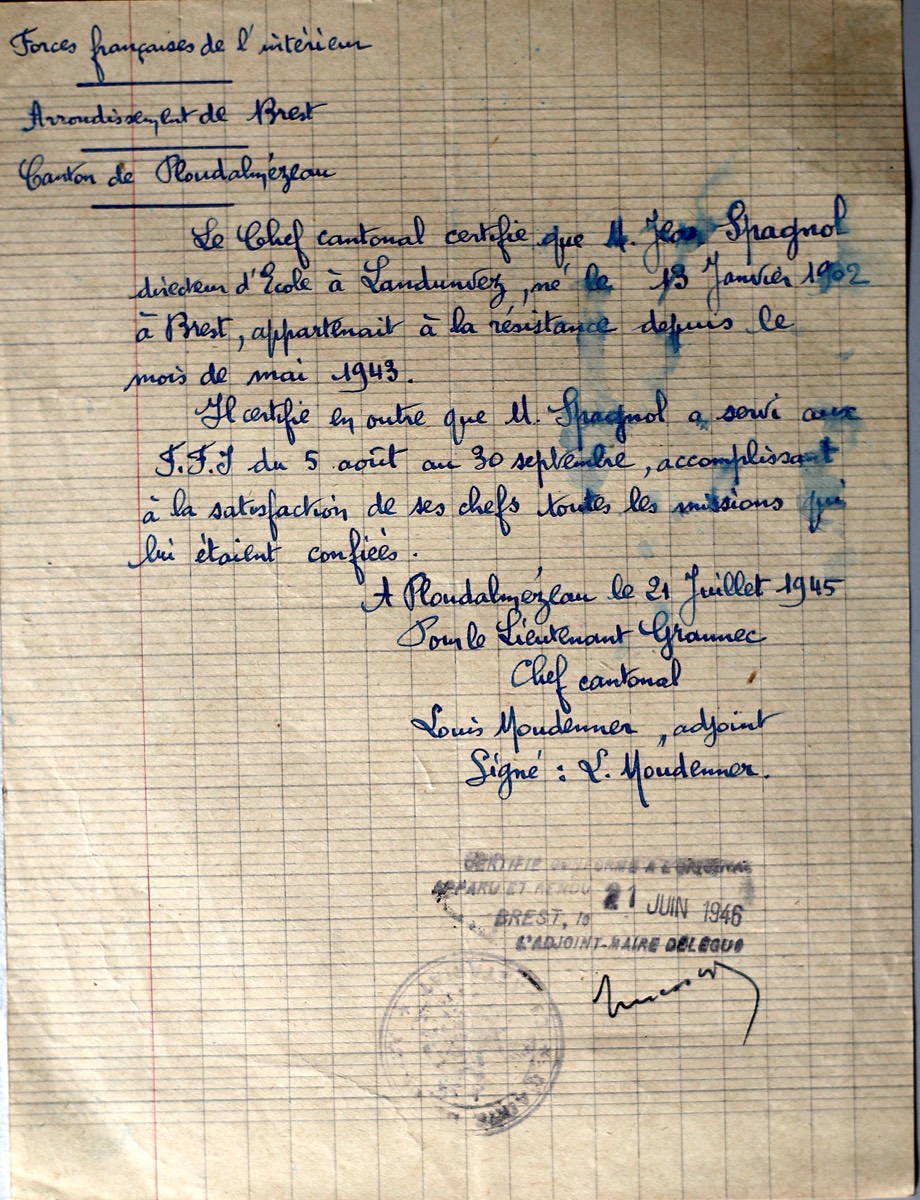 Forces françaises de l'intérieur
Arrondissement de Brest
Canton de Ploudalmézeau
Le Chef cantonal certifie que M. Jean Spagnol
directeur d'Ecole à Landunvez, né le 13 Janvier 1902
à Brest, appartenait à la résistance depuis le
mois de mai 1943.
Il certifie en outre que M. Spagnol a servi aux
F.F.I du 5 août au 30 septembre, accomplissant
à la satisfaction de ses chefs toutes les missions qui
lui étaient confiées.
A Ploudalmézeau le 21 Juillet 1945
Pour le Lieutenant Grannec
Chef cantonal
Louis Moudenner, adjoint
Signé : L. Moudenner.
CERTIFIÉ CONFORME A L'ORIGINAL
APPARU ET RENDU
BREST, le 21 JUIN 1946
L'ADJOINT-MAIRE DÉLÉGUÉ